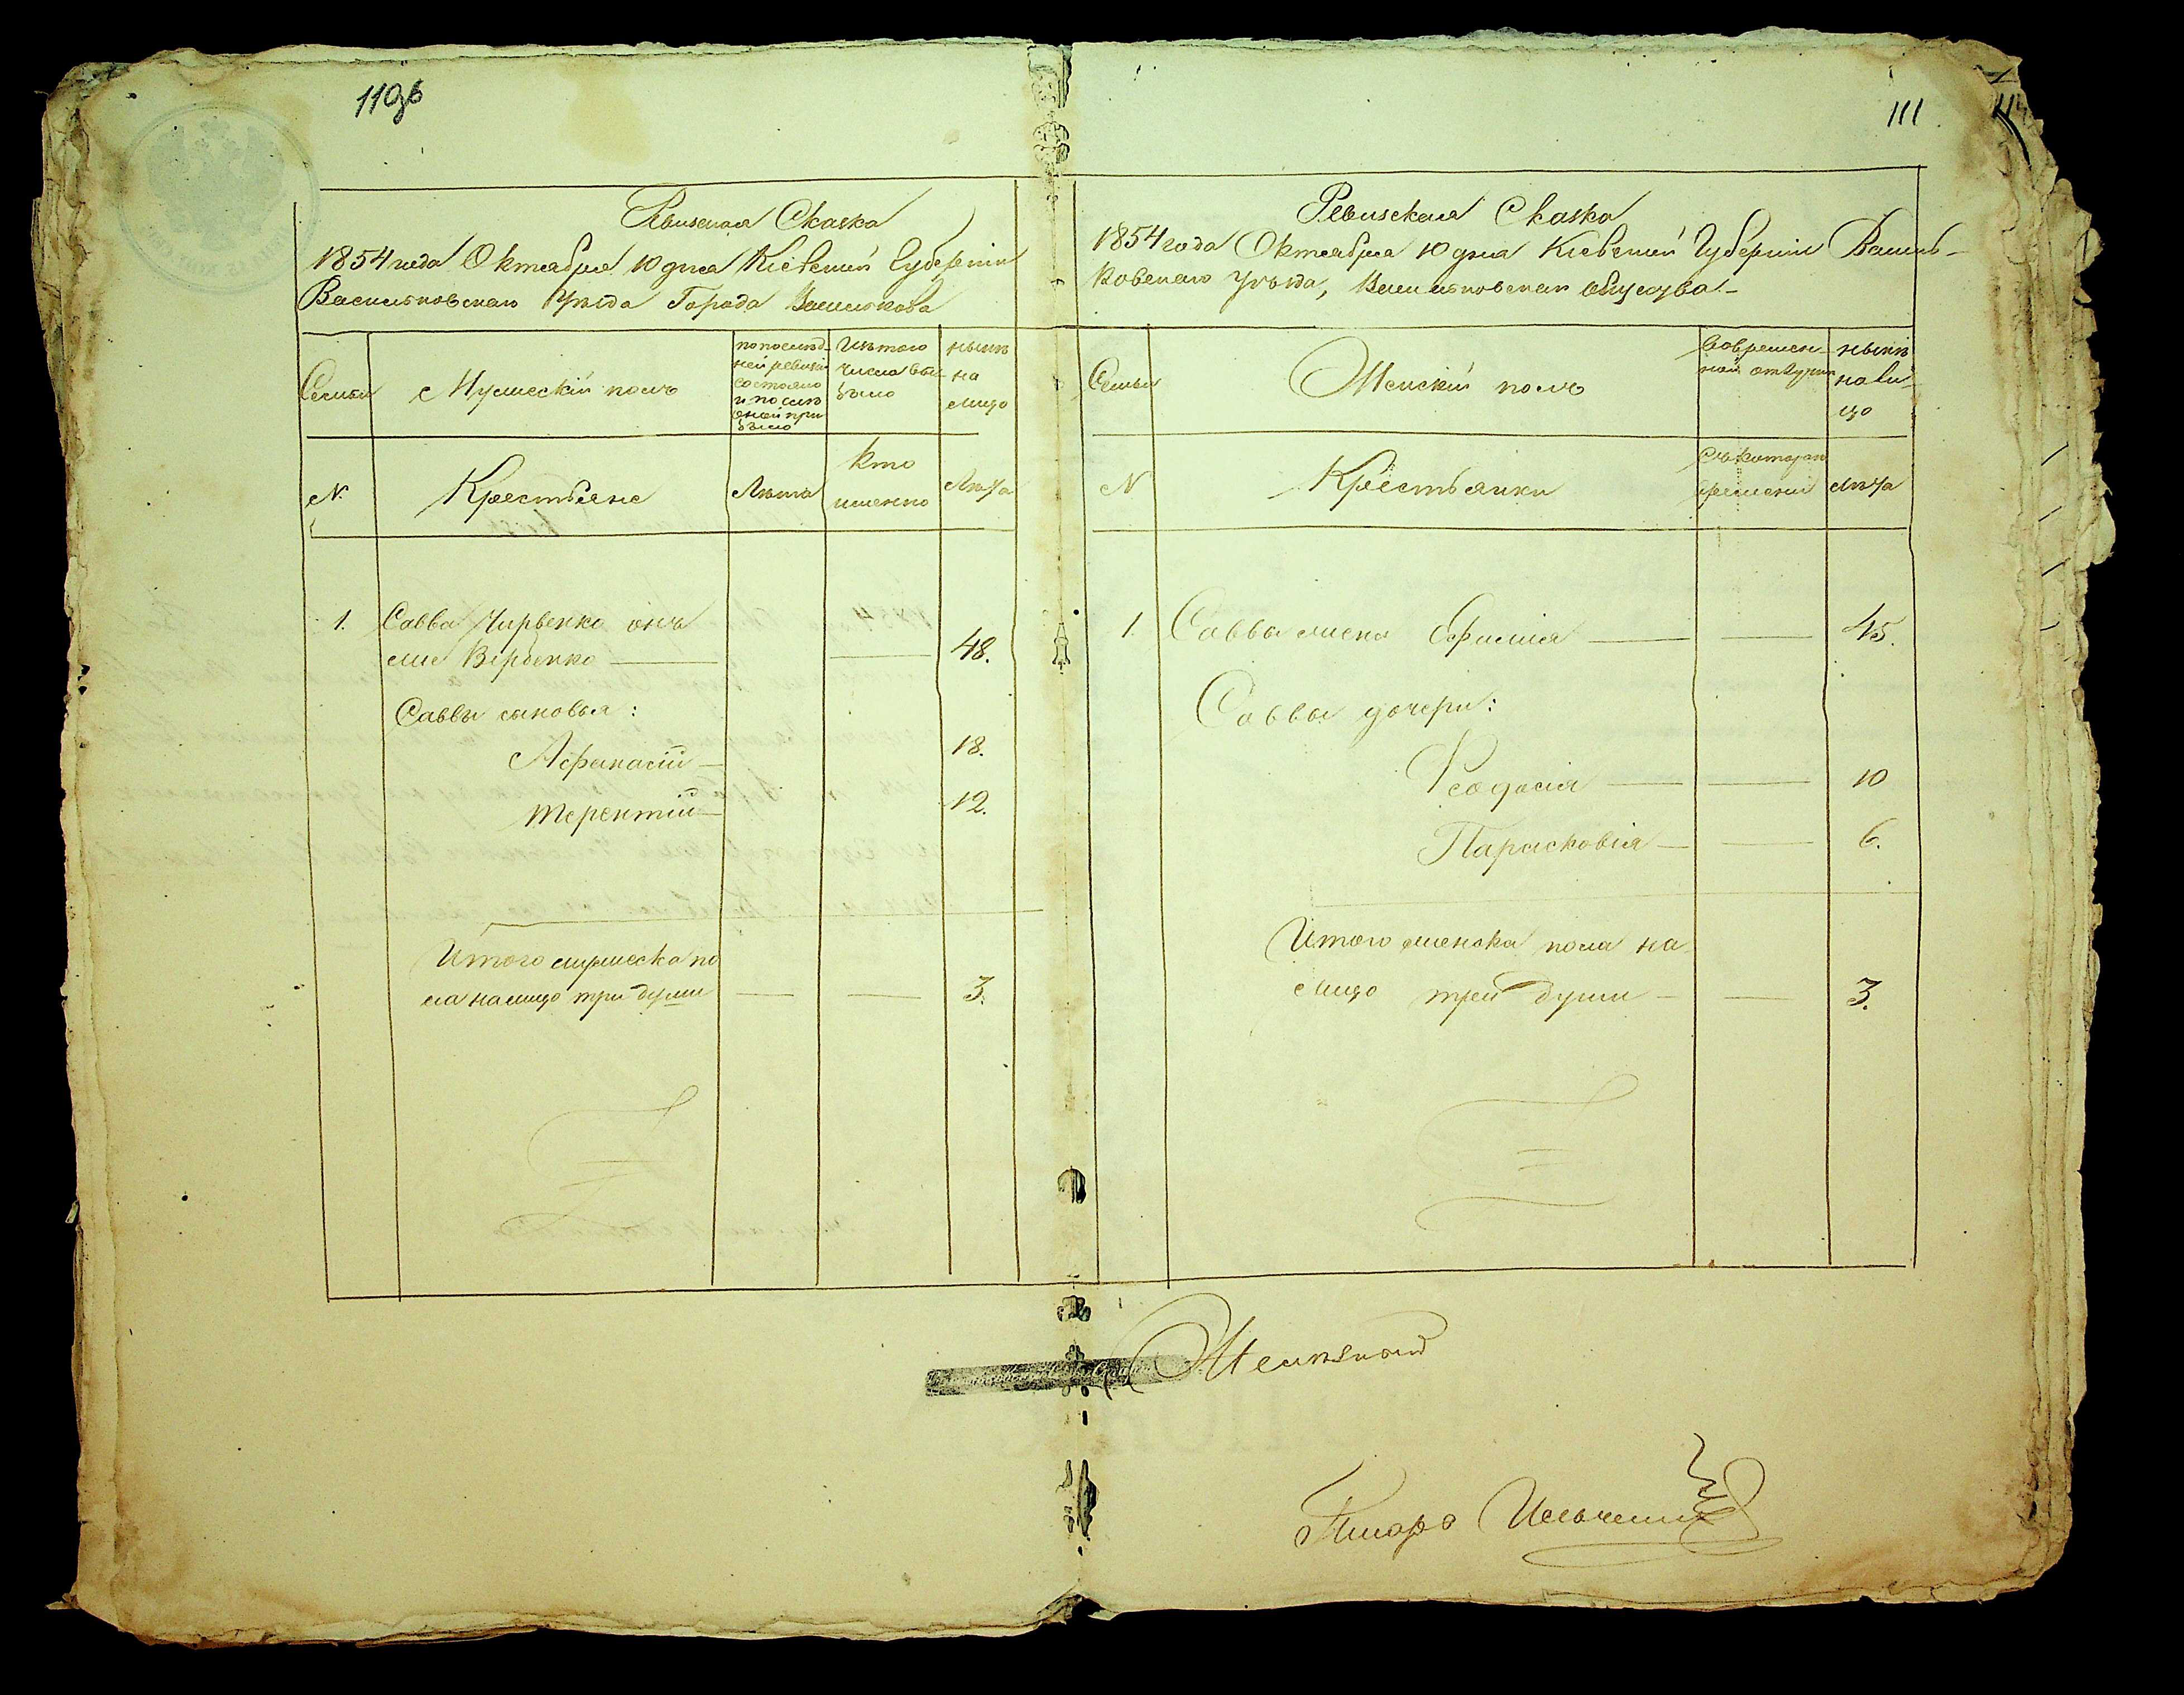 110об
Ревизская Сказка
1854 года Октября 10 дня Кіевской Губерніи
Васильковскаго Уѣзда Города Василькова
Семьи
Мужескій полъ
по послѣд-
ней ревизіи
состояло
и послѣ
оной при
было
Изъ того
числа вы
было
нынѣ
на
лицо
№
Крестьяне
Лѣта
Кто
именно
Лѣта
1. Савва Чирвенко онъ
же Вербенко 48.
Саввы сыновья:
Афанасій 18.
Терентій 12.
Итого мужеска по
ла налицо три души 3.
111
Ревизская Сказка
1854 года Октября 10 дня Кіевской Губерніи Василь-
ковскаго Уѣзда, Васильковскаго общества
Семьи
Женскій полъ
Во времен-
ной отлучкѣ
нынѣ
на ли-
цо
№
Крестьянки
Съ котораго
времени
Лѣта
1. Саввы жена Ефимія 45.
Саввы дочери:
Феодосія 10
Парасковія 6.
Итого женска пола на
лицо три души 3.